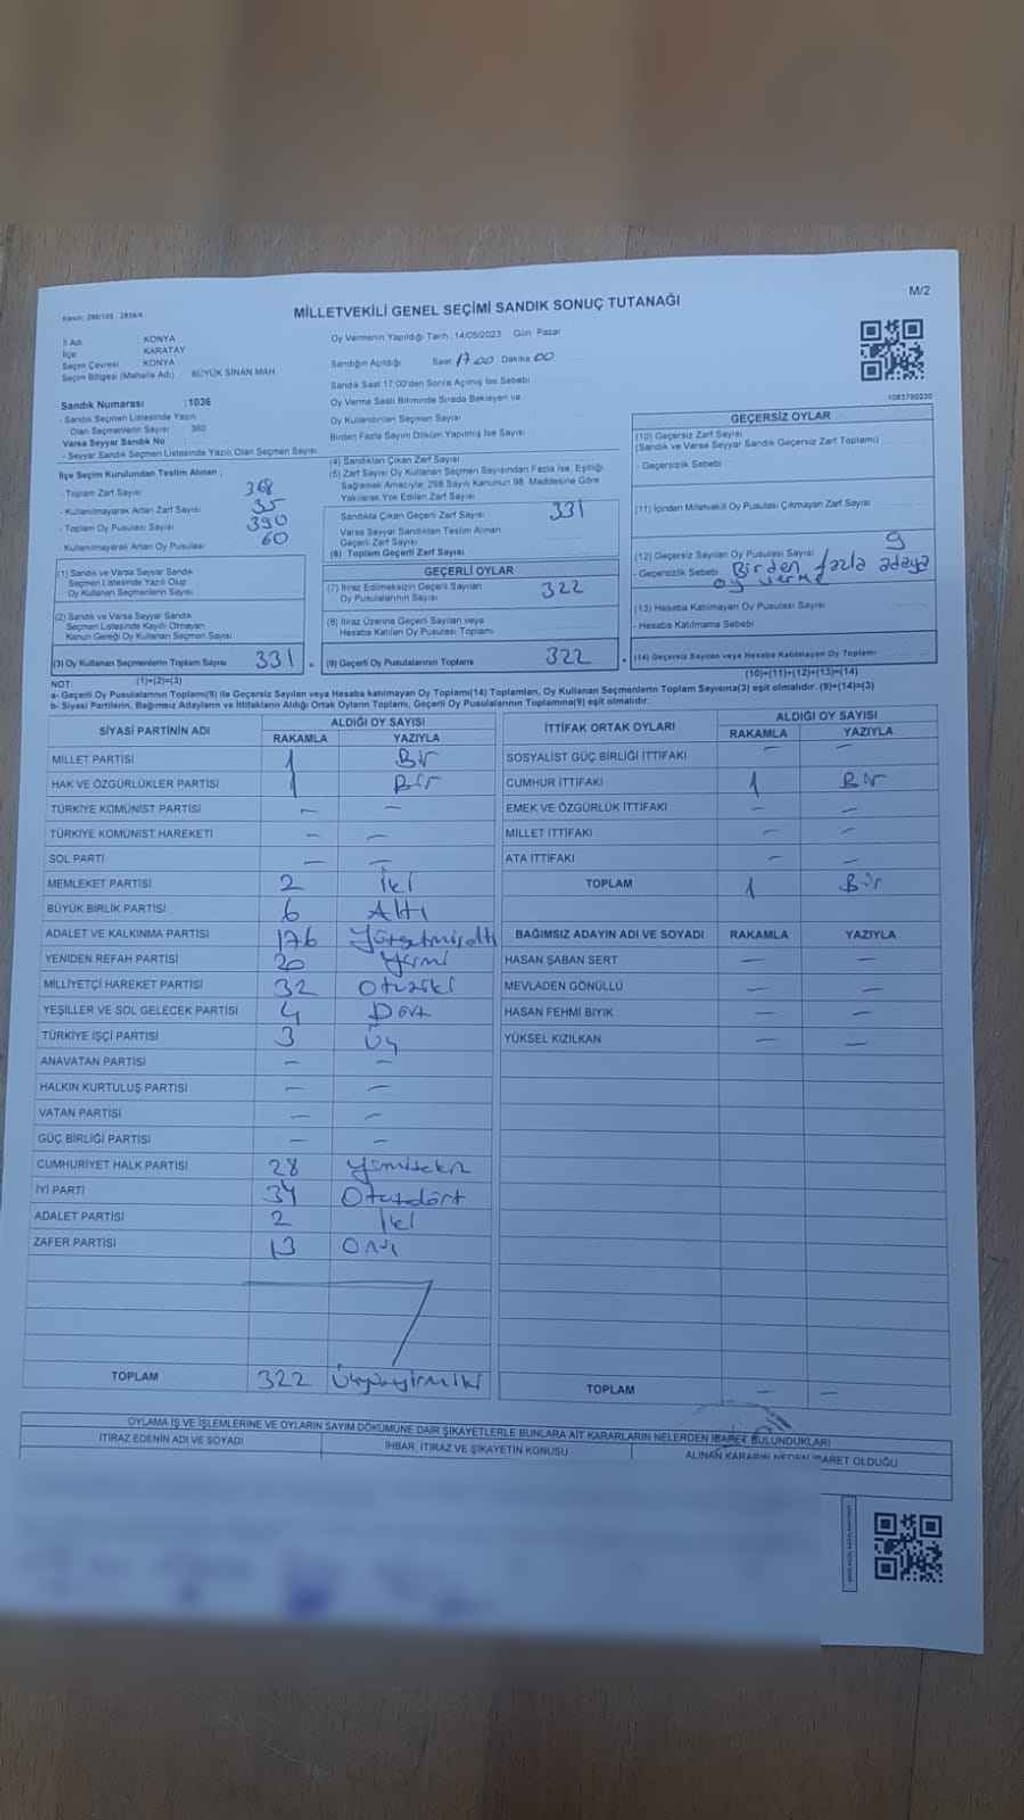 M/2
MİLLETVEKİLİ GENEL SEÇİMİ SANDIK SONUÇ TUTANAĞI
İl Adı KONYA
İlçe KARATAY
Seçim Çevresi KONYA
Seçim Bölgesi (Mahalle Adı) BÜYÜK SİNAN MAH.
Oy Vermenin Yapıldığı Tarih: 14/05/2023 Gün: Pazar
Sandığın Açıldığı Saat 17.00 Dakika 00
Sandık Saat 17:00'den Sonra Açılmış İse Sebebi
Oy Verme Saati Bitiminde Sırada Bekleyen ve
Oy Kullandırılan Seçmen Sayısı
Birden Fazla Sayım Döküm Yapılmış İse Sayısı
Sandık Numarası :1036
- Sandık Seçmen Listesinde Yazılı
Olan Seçmenlerin Sayısı 360
Varsa Seyyar Sandık No
- Seyyar Sandık Seçmen Listesinde Yazılı Olan Seçmen Sayısı
İlçe Seçim Kurulundan Teslim Alınan ;
- Toplam Zarf Sayısı 368
- Kullanılmayarak Artan Zarf Sayısı 35
- Toplam Oy Pusulası Sayısı 390
- Kullanılmayarak Artan Oy Pusulası 60
(1) Sandık ve Varsa Seyyar Sandık
Seçmen Listesinde Yazılı Olup
Oy Kullanan Seçmenlerin Sayısı
(2) Sandık ve Varsa Seyyar Sandık
Seçmen Listesinde Kayıtlı Olmayan
Kanun Gereği Oy Kullanan Seçmen Sayısı
(3) Oy Kullanan Seçmenlerin Toplam Sayısı 331
(1)+(2)=(3)
(4) Sandıktan Çıkan Zarf Sayısı
(5) Zarf Sayısı Oy Kullanan Seçmen Sayısından Fazla İse, Eşitliği
Sağlamak Amacıyla; 298 Sayılı Kanunun 98. Maddesine Göre
Yakılarak Yok Edilen Zarf Sayısı
Sandıkta Çıkan Geçerli Zarf Sayısı 331
Varsa Seyyar Sandıktan Teslim Alınan
Geçerli Zarf Sayısı
(6) Toplam Geçerli Zarf Sayısı
GEÇERLİ OYLAR
(7) İtiraz Edilmeksizin Geçerli Sayılan
Oy Pusulalarının Sayısı 322
(8) İtiraz Üzerine Geçerli Sayılan veya
Hesaba Katılan Oy Pusulası Toplamı
(9) Geçerli Oy Pusulalarının Toplamı 322
1083780230
GEÇERSİZ OYLAR
(10) Geçersiz Zarf Sayısı
(Sandık ve Varsa Seyyar Sandık Geçersiz Zarf Toplamı)
- Geçersizlik Sebebi
(11) İçinden Milletvekili Oy Pusulası Çıkmayan Zarf Sayısı
(12) Geçersiz Sayılan Oy Pusulası Sayısı 9
- Geçersizlik Sebebi Birden fazla adaya
oy verme
(13) Hesaba Katılmayan Oy Pusulası Sayısı
- Hesaba Katılmama Sebebi
(14) Geçersiz Sayılan veya Hesaba Katılmayan Oy Toplamı
(10)+(11)+(12)+(13)=(14)
NOT:
a- Geçerli Oy Pusulalarının Toplamı(9) ile Geçersiz Sayılan veya Hesaba katılmayan Oy Toplamı(14) Toplamları, Oy Kullanan Seçmenlerin Toplam Sayısına(3) eşit olmalıdır. (9)+(14)=(3)
b- Siyasi Partilerin, Bağımsız Adayların ve İttifakların Aldığı Ortak Oyların Toplamı, Geçerli Oy Pusulalarının Toplamına(9) eşit olmalıdır.
SİYASİ PARTİNİN ADI ALDIĞI OY SAYISI
RAKAMLA YAZIYLA
MİLLET PARTİSİ 1 Bir
HAK VE ÖZGÜRLÜKLER PARTİSİ 1 Bir
TÜRKİYE KOMÜNİST PARTİSİ — —
TÜRKİYE KOMÜNİST HAREKETİ — —
SOL PARTİ — —
MEMLEKET PARTİSİ 2 İki
BÜYÜK BİRLİK PARTİSİ 6 Altı
ADALET VE KALKINMA PARTİSİ 176 Yüzyetmişaltı
YENİDEN REFAH PARTİSİ 20 Yirmi
MİLLİYETÇİ HAREKET PARTİSİ 32 Otuziki
YEŞİLLER VE SOL GELECEK PARTİSİ 4 Dört
TÜRKİYE İŞÇİ PARTİSİ 3 Üç
ANAVATAN PARTİSİ — —
HALKIN KURTULUŞ PARTİSİ — —
VATAN PARTİSİ — —
GÜÇ BİRLİĞİ PARTİSİ — —
CUMHURİYET HALK PARTİSİ 28 Yirmisekiz
İYİ PARTİ 34 Otuzdört
ADALET PARTİSİ 2 İki
ZAFER PARTİSİ 13
TOPLAM 322 Üçyüzyirmiiki
İTTİFAK ORTAK OYLARI ALDIĞI OY SAYISI
RAKAMLA YAZIYLA
SOSYALİST GÜÇ BİRLİĞİ İTTİFAKI — —
CUMHUR İTTİFAKI 1 Bir
EMEK VE ÖZGÜRLÜK İTTİFAKI — —
MİLLET İTTİFAKI — —
ATA İTTİFAKI — —
TOPLAM 1 Bir
BAĞIMSIZ ADAYIN ADI VE SOYADI RAKAMLA YAZIYLA
HASAN ŞABAN SERT — —
MEVLADEN GÖNÜLLÜ — —
HASAN FEHMİ BIYIK — —
YÜKSEL KIZILKAN — —
TOPLAM — —
OYLAMA İŞ VE İŞLEMLERİNE VE OYLARIN SAYIM DÖKÜMÜNE DAİR ŞİKAYETLERLE BUNLARA AİT KARARLARIN NELERDEN İBARET BULUNDUKLARI
İTİRAZ EDENİN ADI VE SOYADI İHBAR, İTİRAZ VE ŞİKAYETİN KONUSU ALINAN KARARIN NEDEN İBARET OLDUĞU